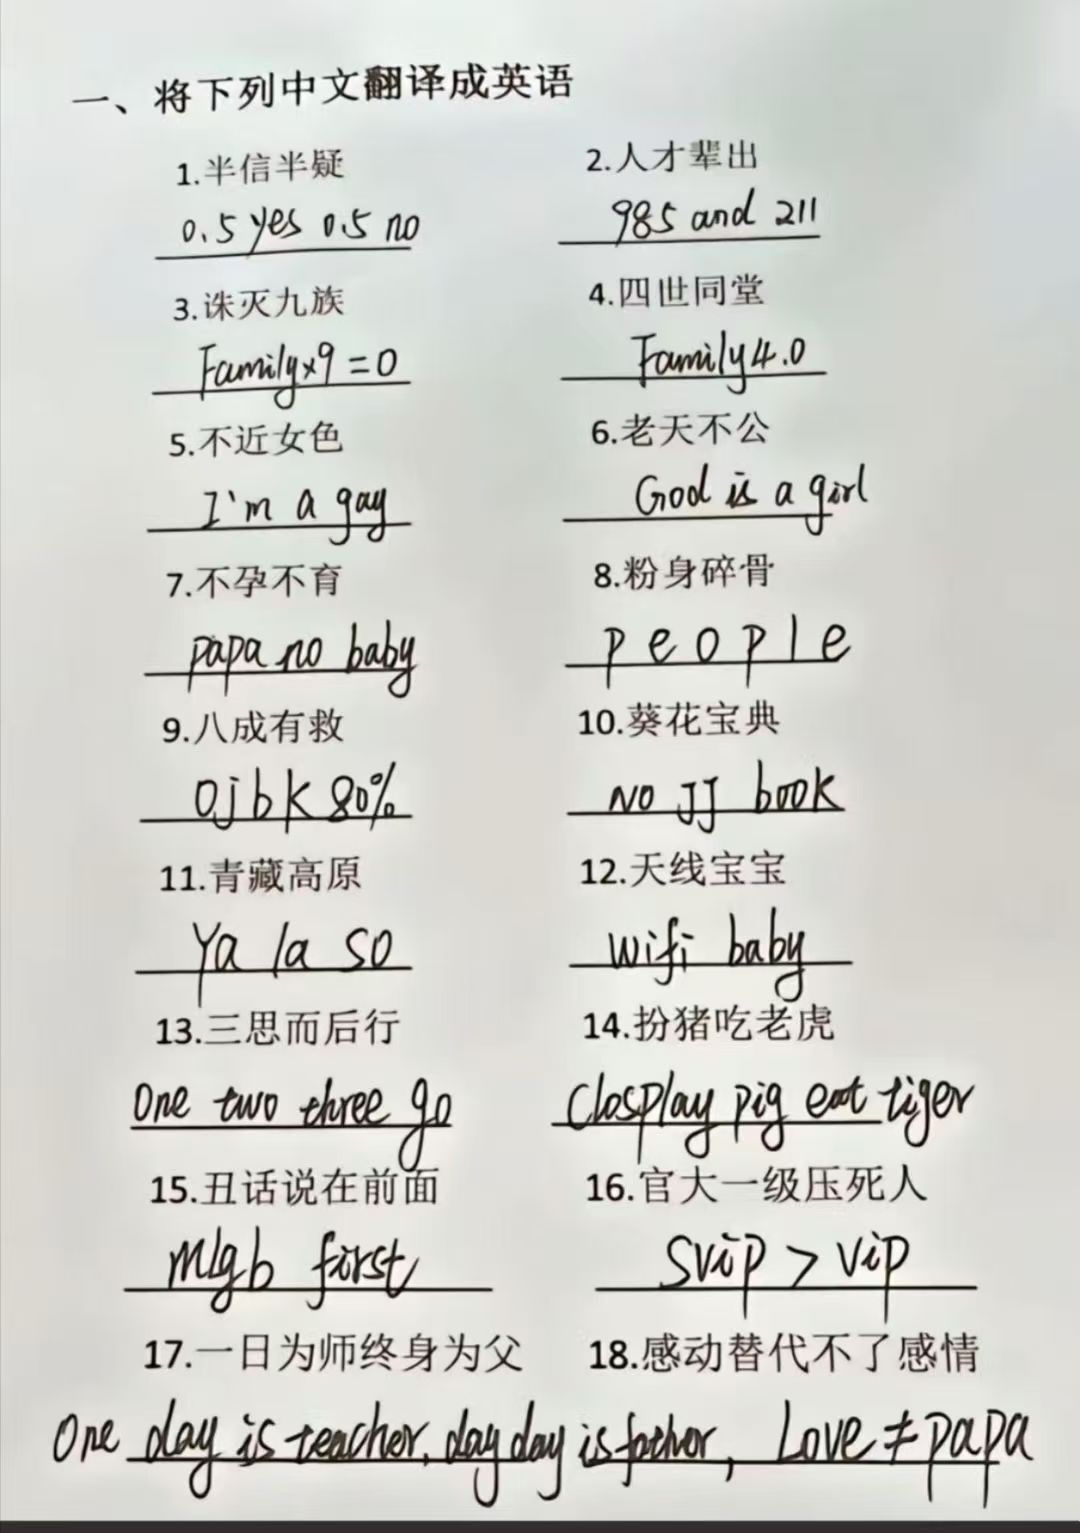 一、将下列中文翻译成英语
1.半信半疑 2.人才辈出
0.5 yes 0.5 no 985 and 211
3.诛灭九族 4.四世同堂
Family×9=0 Family4.0
5.不近女色 6.老天不公
I'm a gay God is a girl
7.不孕不育 8.粉身碎骨
papa no baby p e o p l e
9.八成有救 10.葵花宝典
Ojbk 80% NO JJ book
11.青藏高原 12.天线宝宝
Ya la so wifi baby
13.三思而后行 14.扮猪吃老虎
One two three go Closplay pig eat tiger
15.丑话说在前面 16.官大一级压死人
mlgb first Svip > vip
17.一日为师终身为父 18.感动替代不了感情
One day is teacher, day day is father, Love ≠ papa